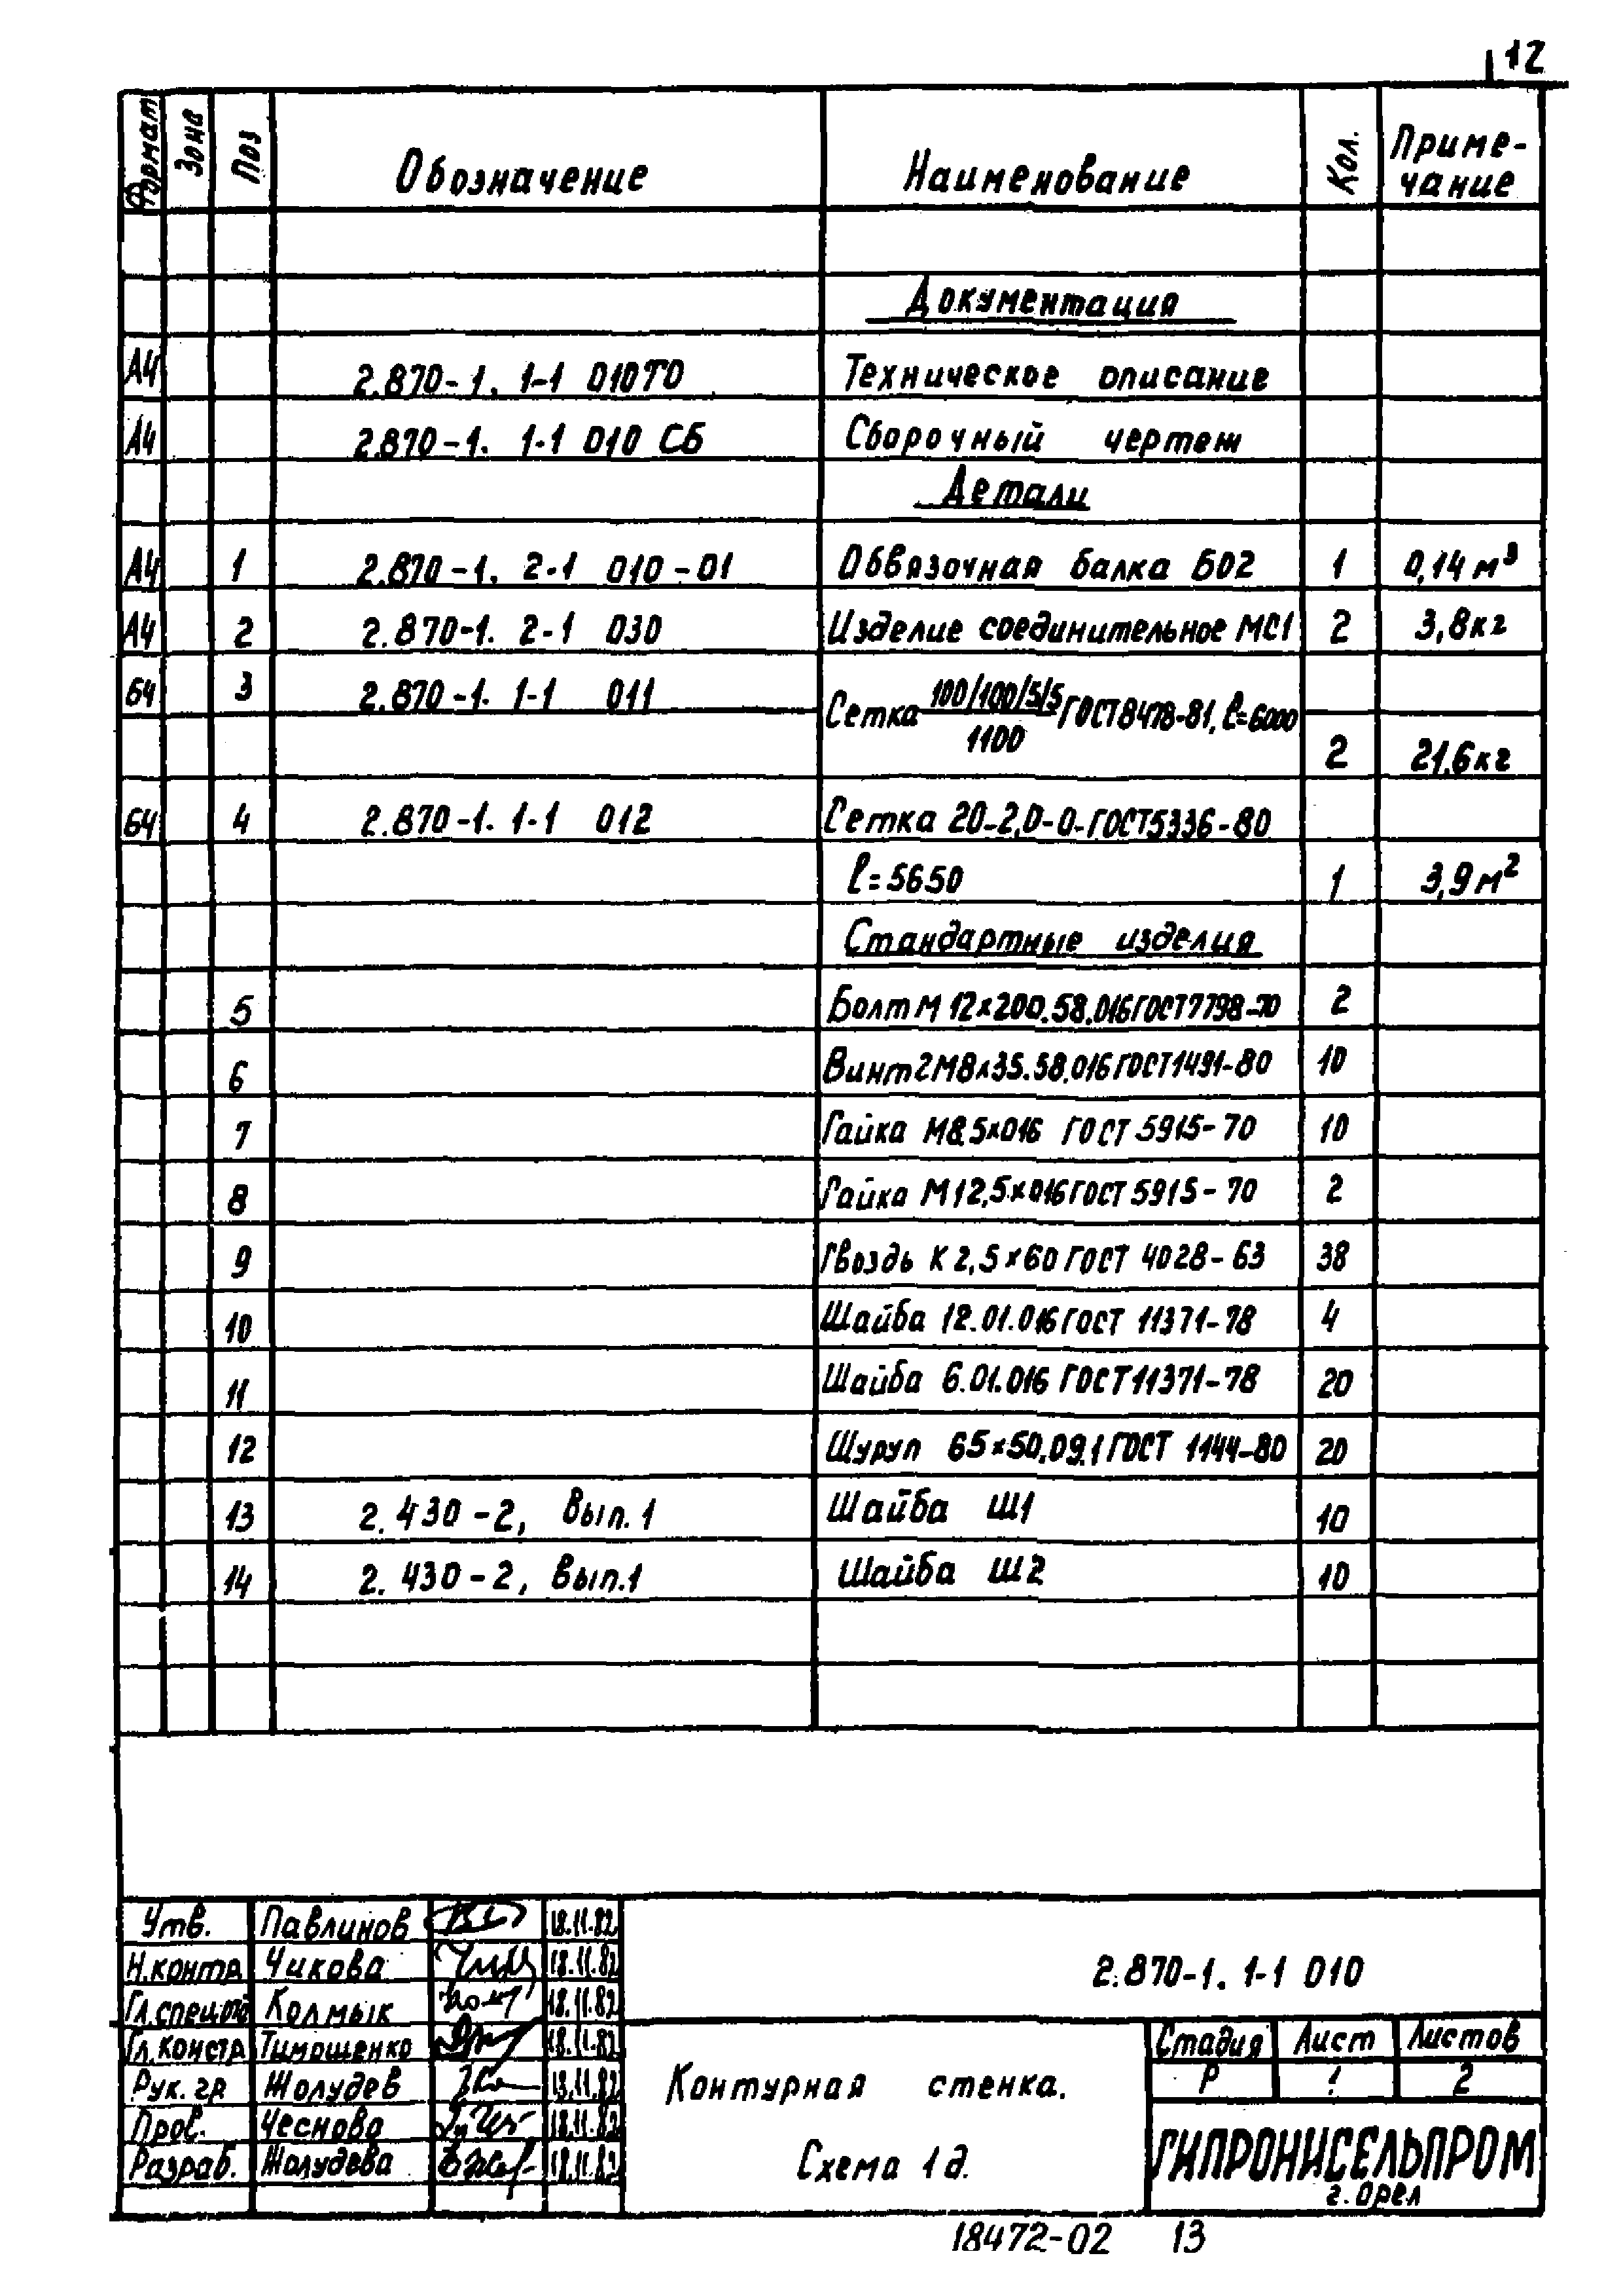 12
Формат Зона Поз Обозначение Наименование Кол. Приме-
чание
Документация
А4 2.870-1. 1-1 010ТО Техническое описание
А4 2.870-1. 1-1 010 СБ Сборочный чертеж
Детали
А4 1 2.870-1. 2-1 010-01 Обвязочная балка Б02 1 0,14 м³
А4 2 2.870-1. 2-1 030 Изделие соединительное МС1 2 3,8кг
Б4 3 2.870-1. 1-1 011 Сетка 100/100/5/5 ГОСТ8478-81, ℓ=6000
1100 2 21,6кг
Б4 4 2.870-1. 1-1 012 Сетка 20-2,0-0-ГОСТ5336-80
ℓ=5650 1 3,9м²
Стандартные изделия
5 Болт М 12х200.58.016ГОСТ7798-70 2
6 Винт2М8х35.58.016ГОСТ1491-80 10
7 Гайка М8.5х016 ГОСТ 5915-70 10
8 Гайка М12,5х016ГОСТ5915-70 2
9 Гвоздь К 2,5х60 ГОСТ 4028-63 38
10 Шайба 12.01.016ГОСТ 11371-78 4
11 Шайба 6.01.016 ГОСТ11371-78 20
12 Шуруп 65х50.09.1 ГОСТ 1144-80 20
13 2.430-2, Вып.1 Шайба Ш1 10
14 2.430-2, Вып.1 Шайба Ш2 10
Утв. Павлинов 18.11.82
Н.контр Чикова 18.11.82
2.870-1. 1-1 010
Гл.спец.отд Колмык 18.11.82
Гл.констр Тимошенко 18.11.82
Рук. гр Жолудев 18.11.82
Пров. Чеснова 18.11.82
Разраб. Жолудева 18.11.82
Контурная стенка.
Схема 1д.
Стадия Лист Листов
Р 1 2
ГИПРОНИСЕЛЬПРОМ
г. Орел
18472-02 13